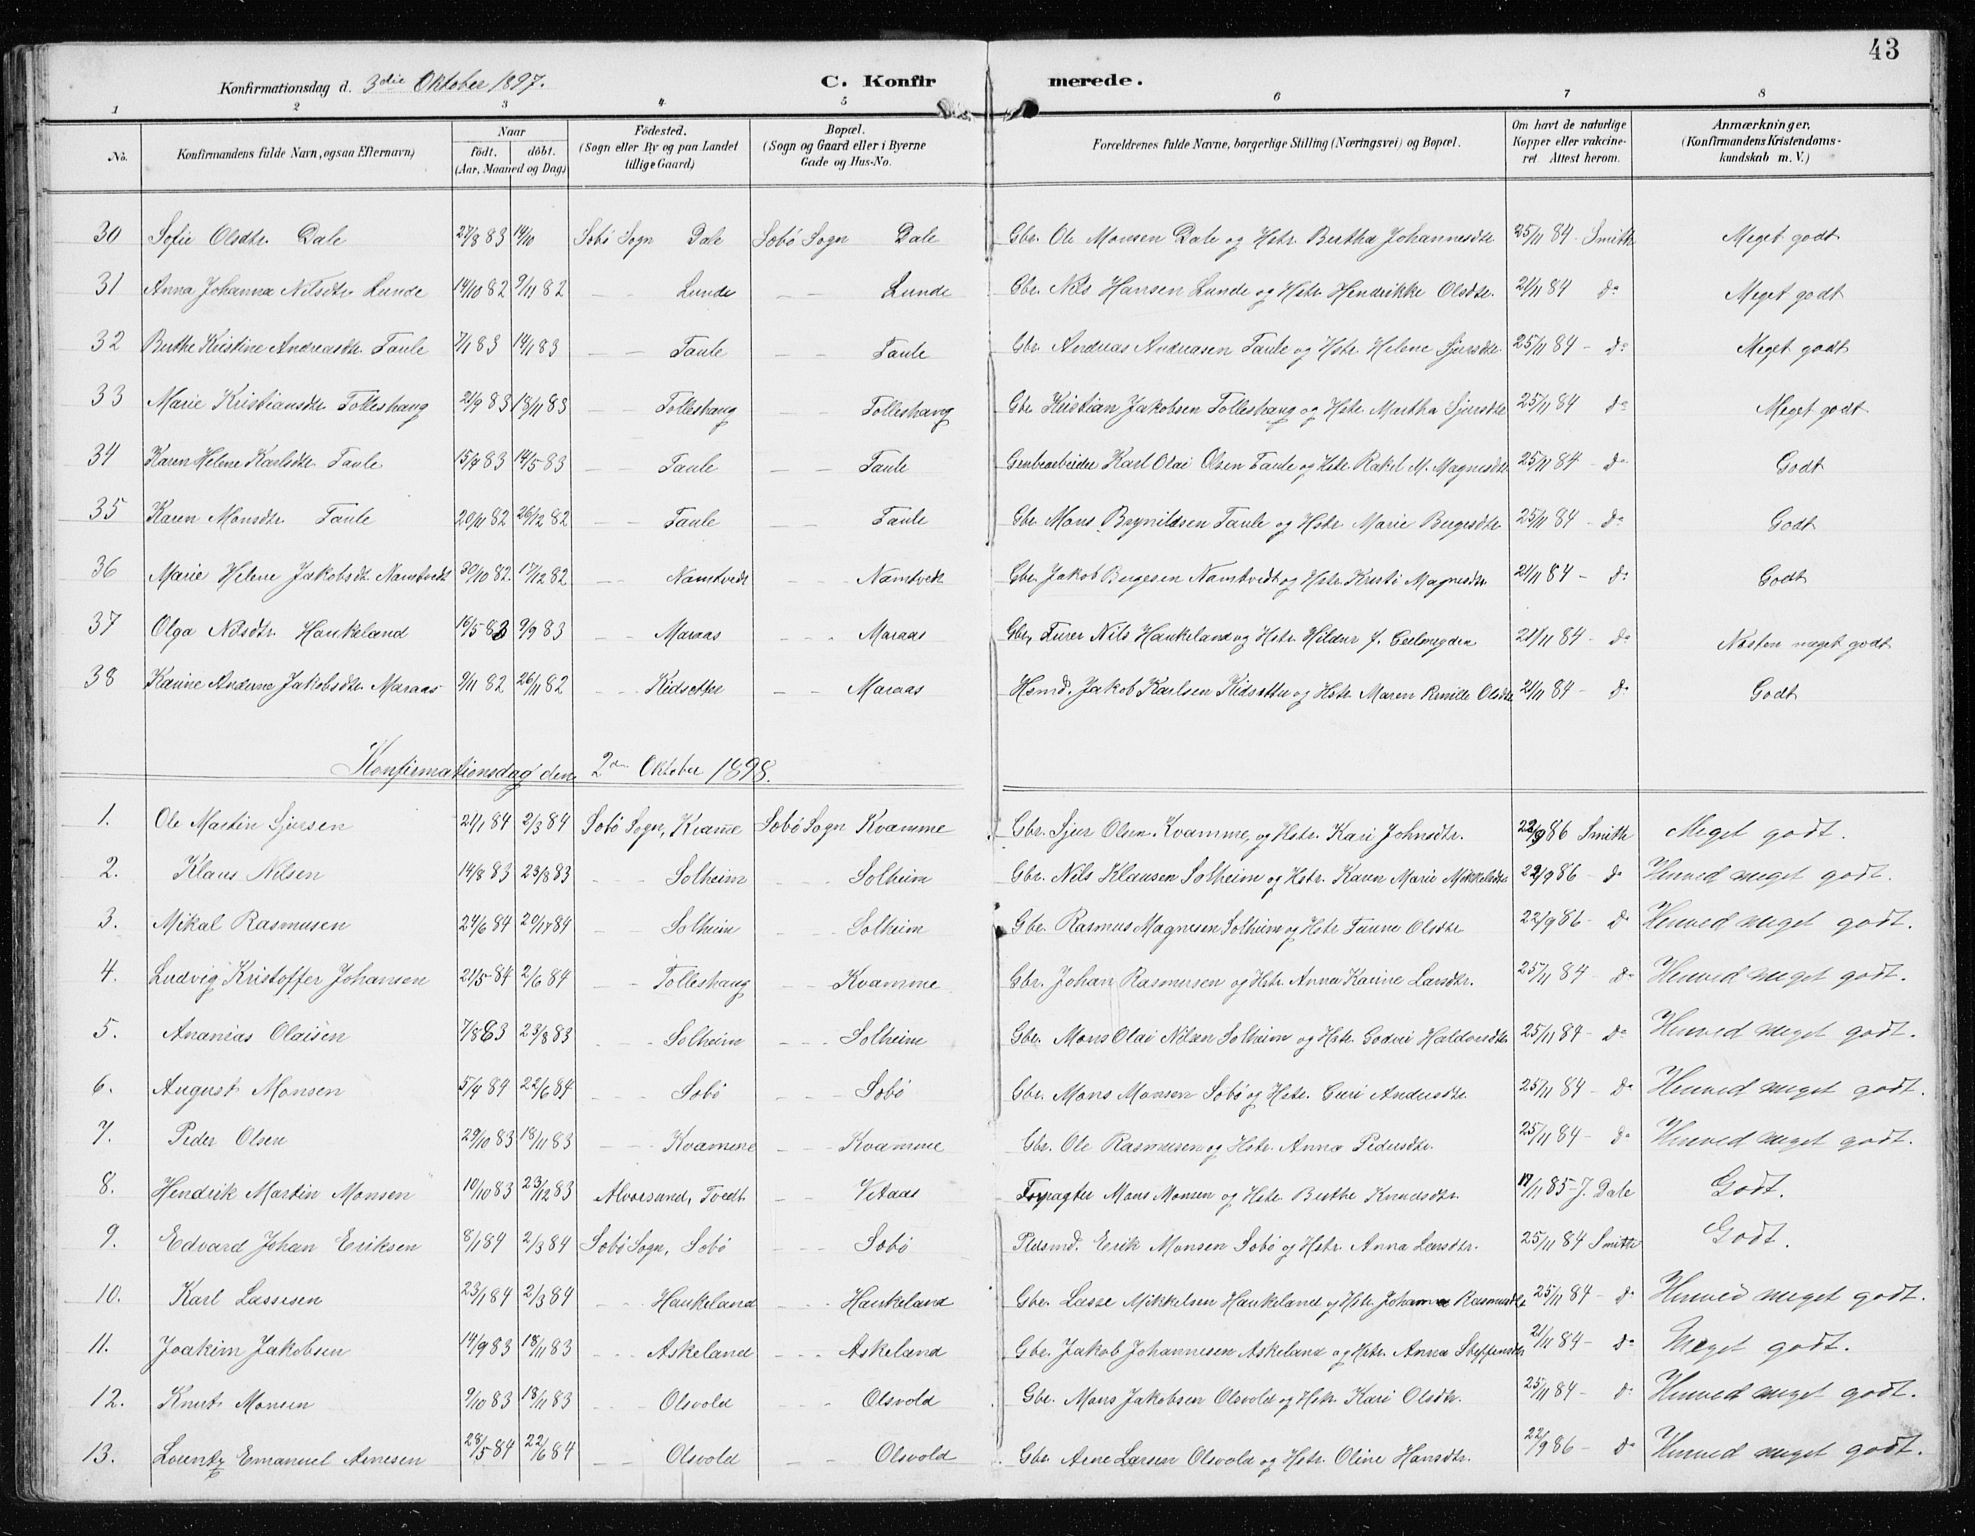 43
Konfirmationsdag d. 3die Oktober 1897. C. Konfirmerede.
1 2 3 4 5 6 7 8
No. Konfirmandens fulde Navn, ogsaa Efternavn) Naar födt. döbt. (Aar, Maaned og Dag) Födested. (Sogn eller By og paa Landet tillige Gaard) Bopæl. (Sogn og Gaard eller i Byerne Gade og Hus-No. Forældrenes fulde Navne, borgerlige Stilling (Næringsvei) og Bopæl. Om havt de naturlige Kopper eller vakcineret. Attest herom. Anmærkninger. (Konfirmandens Kristendomskundskab m. V.)
30 Sofie Olsdtr. Dale 27/8 83 14/10 Sobö Sogn Dale Sobö Sogn Dale Gbr. Ole Monsen Dale og Hstr. Bertha Johannesdtr 25/11 84 - Smith Meget godt
31 Anna Johanna Nilsdtr. Lunde 14/10 82 9/11 82 — — Lunde — — Lunde Gbr. Nils Hansen Lunde og Hstr. Hendrikke Olsdtr. 21/11 84 do Meget godt
32 Berthe Kristine Andreasdtr. Taule 7/1 83 14/1 83 — — Taule — — Taule Gbr. Andreas Andreasen Taule og Hstr. Helene Sjursdtr. 25/11 84 - do Meget godt
33 Marie Kristiansdtr Tolleshaug 21/9 83 18/11 83 — — Tolleshaug — — Tolleshaug Gbr. Kristian Jakobsen Tolleshaug og Hstr. Martha Sjursdtr 25/11 84 do Meget godt
34 Karen Helene Karlsdtr. Taule 15/4 83 14/5 83 — — Taule — — Taule Grubearbeider Karl Olai Olsen Taule og Hstr. Rakel M. Magnesdtr 25/11 84 - do Godt
35 Karen Monsdtr. Taule 20/11 82 26/12 82 — — Taule — — Taule Gbr. Mons Brynildsen Taule og Hstr. Marie Bergesdtr 25/11 84 - do Godt
36 Marie Helene Jakobsdt. Namtvedt 30/10 82 17/12 82 — — Namtvedt — — Namtvedt Gbr. Jakob Bergesen Namtvedt og Hstr. Kristi Magnesdtr 21/11 84 - do Godt
37 Olga Nilsdtr. Haukeland 16/5 83 9/9 83 — — Maraas — — Maraas Gbr. Furer Nils Haukeland og Hstr. Hildur J. 21/11 84 - do Næsten meget godt
38 Karine Andrine Jakobsdtr. Maraas 9/11 82 26/11 82 — — Kidsetter — — Maraas Hsmd. Jakob Karlsen Kidsetter og Hstr. Maren Pernille Olsdtr 21/11 84 - do Godt
Konfirmationsdag den 2den Oktober 1898.
1. Ole Martin Sjursen 21/1 84 2/3 84 Sobö Sogn, Kvamme Sobö Sogn Kvamme Gbr. Sjur Olsen Kvamme, og Hstr. Kari Johnsdtr. 22/9 86 Smith Meget godt.
2. Klaus Nilsen 14/8 83 23/8 83 — — Solheim — — Solheim Gbr. Nils Klausen Solheim og Hstr. Karen Marie Mikkelsdtr 22/9 86 - do Henved meget godt.
3. Mikal Rasmusen 24/6 84 20/7 84 — — Solheim — — Solheim Gbr. Rasmus Magnesen Solheim og Hstr. Olsdtr 22/9 86 - do Henved meget godt.
4. Ludvig Kristoffer Johansen 21/5 84 2/6 84 — — Tolleshaug — — Kvamme Gbr. Johan Rasmusen og Hstr. Anna Karine Larsdtr. 25/11 84 - do Henved meget godt.
5. Ananias Olaisen 7/8 83 23/8 83 — — Solheim — — Solheim Gbr. Mons Olai Nilsen Solheim og Hstr. Godvei Haldorsdtr 25/11 84 - do Henved meget godt.
6. August Monsen 5/4 84 22/6 84 — — Sobö — — Sobö Gbr. Mons Monsen Sobö og Hstr. Guri Andersdtr 25/11 84 - do Henved meget godt.
7. Peder Olsen 29/10 83 18/11 83 — — Kvamme — — Kvamme Gbr. Ole Rasmusen og Hstr. Anna Pedersdtr. 25/11 84 - do Henved meget godt.
8. Hendrik Martin Monsen 10/10 83 23/12 83 Alversund, Tvedt — — Vetaas Forpagter Mons Monsen og Hstr. Berthe Knudsdtr. 19/11 85 - J. Dale Godt.
9. Edvard Johan Eriksen 8/1 84 2/3 84 Sobö Sogn, Sobö — — Sobö Pldsmd. Erik Monsen Sobö og Hstr. Anna Larsdtr. 25/11 84 Smith Godt.
10. Karl Lassesen 23/1 84 2/3 84 — — Haukeland — — Haukeland Gbr. Lasse Mikkelsen Haukeland og Hstr. Johanna Rasmusdtr 25/11 84 - do Henved meget godt.
11. Joakim Jakobsen 14/9 83 18/11 83 — — Askeland — — Askeland Gbr. Jakob Johannesen Askeland og Hstr. Anna Steffensdtr 21/11 84 - do Meget godt.
12. Knut Monsen 9/10 83 18/11 83 — — Olsvold — — Olsvold Gbr. Mons Jakobsen Olsvold og Hstr. Kari Olsdtr. 25/11 84 - do Henved meget godt.
13. Lorentz Emanuel Arnesen 28/5 84 22/6 84 — — Olsvold — — Olsvold Gbr. Arne Larsen Olsvold og Hstr. Oline Hansdtr. 22/9 86 - do Henved meget godt.